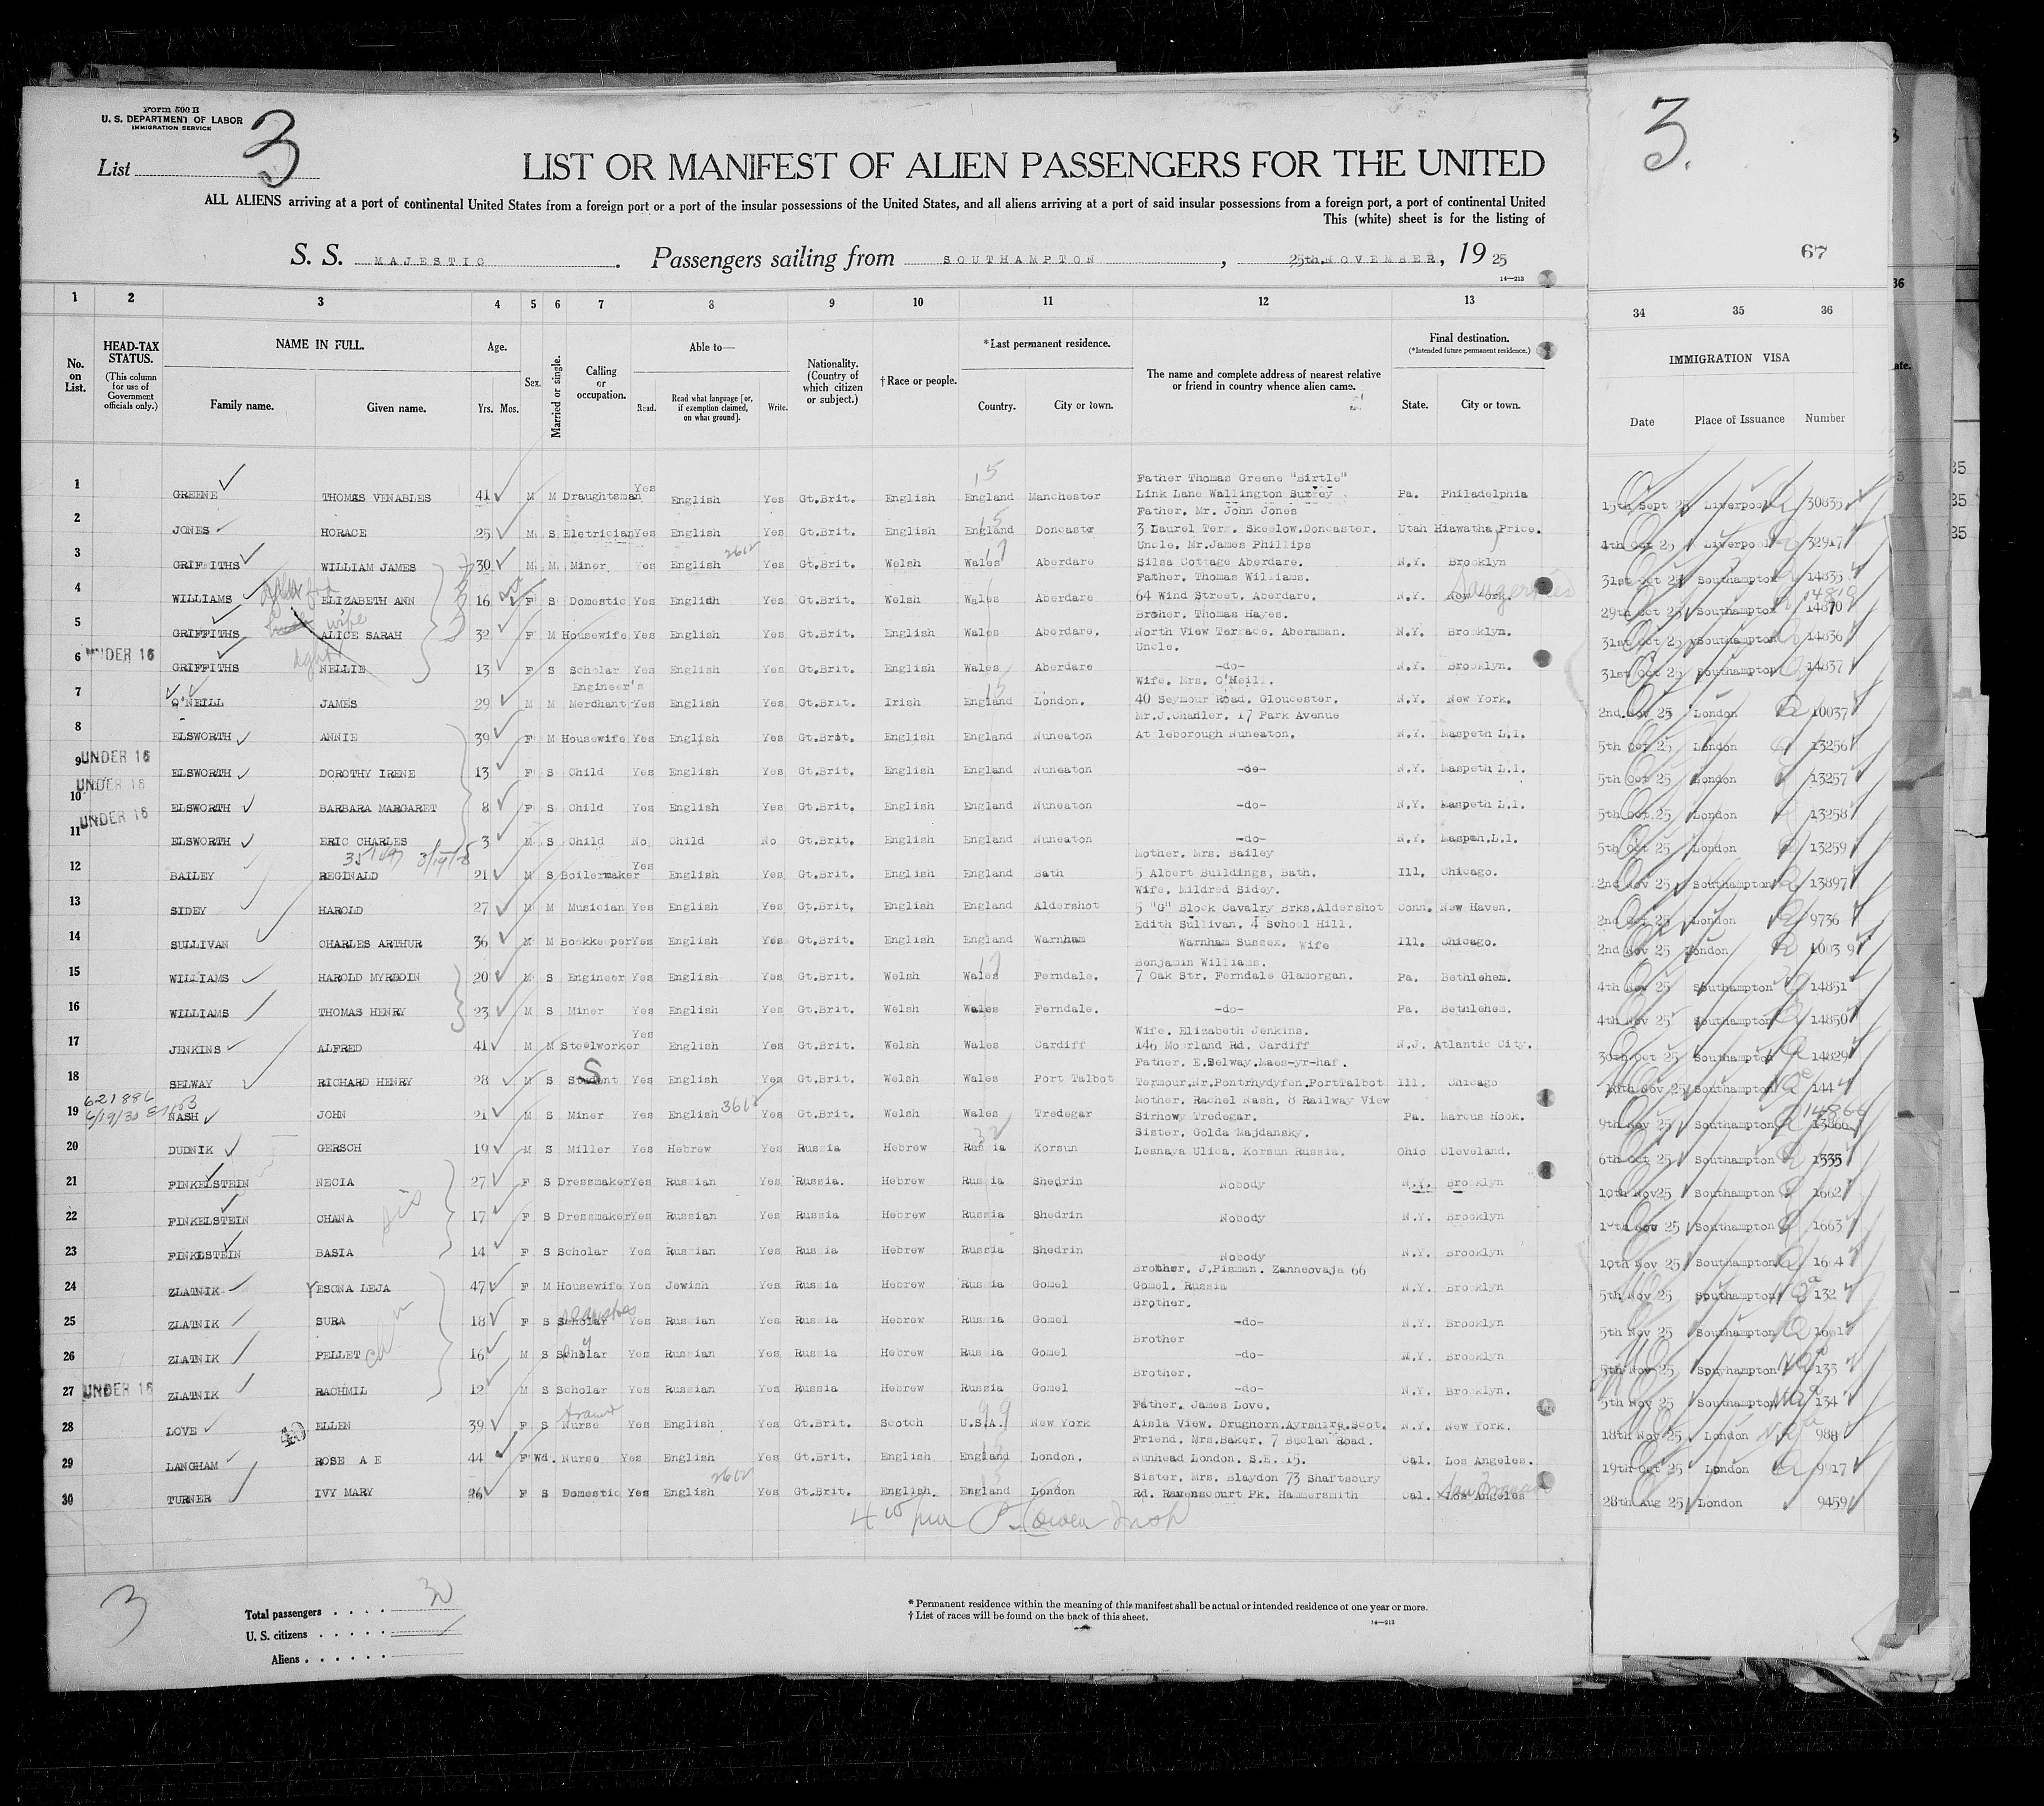 Form 500 B
U. S. DEPARTMENT OF LABOR
IMMIGRATION SERVICE
List 3
3.
LIST OR MANIFEST OF ALIEN PASSENGERS FOR THE UNITED
ALL ALIENS arriving at a port of continental United States from a foreign port or a port of the insular possessions of the United States, and all aliens arriving at a port of said insular possessions from a foreign port, a port of continental United
This (white) sheet is for the listing of
67
S. S. MAJESTIC. Passengers sailing from SOUTHAMPTON, 25th. NOVEMBER, 19 25
14—213
1 2 3 4 5 6 7 8 9 10 11 12 13 34 35 36
No. on List.
HEAD-TAX STATUS.
(This column for use of Government officials only.)
NAME IN FULL.
Family name. Given name.
Age.
Yrs. Mos.
Sex.
Married or single.
Calling or occupation.
Able to—
Read. Read what language [or, if exemption claimed, on what ground]. Write.
Nationality. (Country of which citizen or subject.)
†Race or people.
*Last permanent residence.
Country. City or town.
The name and complete address of nearest relative or friend in country whence alien came.
Final destination.
(*Intended future permanent residence.)
State. City or town.
IMMIGRATION VISA
Date Place of Issuance Number
1 GREENE THOMAS VENABLES 41 M M Draughtsman Yes English Yes Gt.Brit. English England Manchester Father Thomas Greene "Birtle" Link Lane Wallington Surrey Pa. Philadelphia 15th Sept 25 Liverpool 30835
2 JONES HORACE 25 M S Eletrician Yes English Yes Gt.Brit. English England Doncaste Father. Mr. John Jones 3 Laurel Terr. Skeelow.Doncaster. Utah Hiawatha Price. 4th Oct 25 Liverpool 32917
3 GRIFFITHS WILLIAM JAMES 30 M M Miner Yes English Yes Gt.Brit. Welsh Wales Aberdare Uncle. Mr.James Phillips Silsa Cottage Aberdare. N.Y. Brooklyn 31st Oct 25 Southampton 14835
4 WILLIAMS ELIZABETH ANN 16 F S Domestic Yes English Yes Gt.Brit. Welsh Wales Aberdare Father. Thomas Williams. 64 Wind Street. Aberdare. N.Y. New York. Saugerties 29th Oct 25 Southampton 14810
5 GRIFFITHS wife ALICE SARAH 32 F M Housewife Yes English Yes Gt.Brit. English Wales Aberdare. Broher. Thomas Hayes. North View Terrace. Aberaman. N.Y. Brooklyn. 31st Oct 25 Southampton 14836
6 UNDER 16 GRIFFITHS NELLIE 13 F S Scholar Yes English Yes Gt.Brit. English Wales Aberdare Uncle. -do- N.Y. Brooklyn. 31st Oct 25 Southampton 14837
7 O'NEILL JAMES 29 M M Engineer's Merchant Yes English Yes Gt.Brit. Irish England London. Wife. Mrs. O'Neill. 40 Seymour Road. Gloucester. N.Y. New York. 2nd. Nov 25 London 10037
8 ELSWORTH ANNIE 39 F M Housewife Yes English Yes Gt.Brit. English England Nuneaton Mr.J.Chanler. 17 Park Avenue At leborough Nuneaton. N.Y. Maspeth L.I. 5th Oct 25 London 13256
9 UNDER 16 ELSWORTH DOROTHY IRENE 13 F S Child Yes English Yes Gt.Brit. English England Nuneaton -do- N.Y. Maspeth L.I. 5th Oct 25 London 13257
10 UNDER 16 ELSWORTH BARBARA MARGARET 8 F S Child Yes English Yes Gt.Brit. English England Nuneaton -do- N.Y. Maspeth L.I. 5th Oct 25 London 13258
11 UNDER 16 ELSWORTH ERIC CHARLES 3 M S Child No Child No Gt.Brit. English England Nuneaton -do- N.Y. Maspeh.L.I. 5th Oct 25 London 13259
12 BAILEY REGINALD 21 M S Boilermaker Yes English Yes Gt.Brit. English England Bath Mother. Mrs. Bailey 5 Albert Buildings, Bath. Ill. Chicago. 2nd Nov 25 Southampton 13897
13 SIDEY HAROLD 27 M M Musician Yes English Yes Gt.Brit. English England Aldershot Wife. Mildred Sidey. 5 "G" Block Cavalry Brks.Aldershot Conn. New Haven. 2nd Oct 25 London 9736
14 SULLIVAN CHARLES ARTHUR 36 M M Bookkeeper Yes English Yes Gt.Brit. English England Warnham Edith Sullivan. 4 School Hill. Warnham Sussex. Wife Ill. Chicago. 2nd Nov 25 London 1003 9
15 WILLIAMS HAROLD MYRDDIN 20 M S Engineer Yes English Yes Gt.Brit. Welsh Wales Ferndale. Benjamin Williams. 7 Oak Str. Ferndale Glamorgan. Pa. Bethlehem. 4th Nov 25 Southampton 14851
16 WILLIAMS THOMAS HENRY 23 M S Miner Yes English Yes Gt.Brit. Welsh Wales Ferndale. -do- Pa. Bethlehem. 4th Nov 25 Southampton 14850
17 JENKINS ALFRED 41 M M Steelworker Yes English Yes Gt.Brit. Welsh Wales Cardiff Wife. Elizabeth Jenkins. 146 Moorland Rd. Cardiff N.J. Atlantic City. 30th Oct 25 Southampton 14829
18 SELWAY RICHARD HENRY 28 M S Student Yes English Yes Gt.Brit. Welsh Wales Port Talbot Father. E.Selway.Maes-yr-haf. Termour.Nr.Pontrhydyfen.PortTalbot Ill. Chicago 18th Nov 25 Southampton 144
19 621886 6/19/30 NASH JOHN 21 M S Miner Yes English 3612 Yes Gt.Brit. Welsh Wales Tredegar Mother. Rachel Nash. 8 Railway View Sirhowy Tredegar. Pa. Marcus Hook. 9th Nov 25 Southampton 14866
20 DUDNIK GERSCH 19 M S Miller Yes Hebrew Yes Russia Hebrew Russia Korsun Sister. Golda Majdansky. Lesnaya Ulica. Korsun Russia. Ohio Cleveland. 6th Oct 25 Southampton 1335
21 FINKELSTEIN NECIA 27 F S Dressmaker Yes Russian Yes Russia. Hebrew Russia Shedrin Nobody N.Y. Brooklyn 10th Nov25 Southampton 1662
22 FINKELSTEIN CHANA 17 F S Dressmaker Yes Russian Yes Russia Hebrew Russia Shedrin Nobody N.Y. Brooklyn 10th Nov 25 Southampton 1663
23 FINKLSTEIN BASIA 14 F S Scholar Yes Russian Yes Russia Hebrew Russia Shedrin Nobody N.Y. Brooklyn 10th Nov 25 Southampton 1664
24 ZLATNIK YESONA LEJA 47 F M Housewife Yes Jewish Yes Russia Hebrew Russia Gomel Brother. J.Pisman. Zanneovaja 66 Gomel. Russia N.Y. Brooklyn 5th Nov 25 Southampton 132
25 ZLATNIK SURA 18 F S Scholar Yes Russian Yes Russia Hebrew Russia Gomel Brother. -do- N.Y. Brooklyn 5th Nov 25 Southampton
26 ZLATNIK PELLET 16 M S Scholar Yes Russian Yes Russia Hebrew Russia Gomel Brother -do- N.Y. Brooklyn 5th Nov 25 Southampton 133
27 UNDER 16 ZLATNIK RACHMIL 12 M S Scholar Yes Russian Yes Russia Hebrew Russia Gomel Brother. -do- N.Y. Brooklyn. 5th Nov 25 Southampton 134
28 LOVE ELLEN 39 F S Nurse Yes English Yes Gt.Brit. Scotch U.S.A. New York Father. James Love. Aisla View. Drughorn.Ayrshire.Scot. N.Y. New York. 18th Nov 25 London 988
29 LANGHAM ROSE A E 44 F Wd. Nurse Yes English Yes Gt.Brit. English England London. Friend. Mrs.Baker. 7 Buclan Road. Nunhead London. S.E. 15. Cal. Los Angeles. 19th Oct 25 London 9917
30 TURNER IVY MARY 26 F S Domestic Yes English 2612 Yes Gt.Brit. English. England London Sister. Mrs. Blaydon 73 Shaftsbury Rd. Ravenscourt Pk. Hammersmith Cal. Los Angeles 28th Aug 25 London 9459
3
Total passengers 30
U. S. citizens
Aliens
* Permanent residence within the meaning of this manifest shall be actual or intended residence of one year or more.
† List of races will be found on the back of this sheet.
14—213